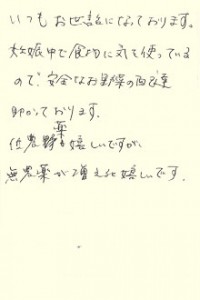 いつもお世話になっております。
妊娠中で食物に気を使っている
ので、安全なお野菜の配達
助かっております。
低農薬野菜も嬉しいですが、
無農薬が増えると嬉しいです。